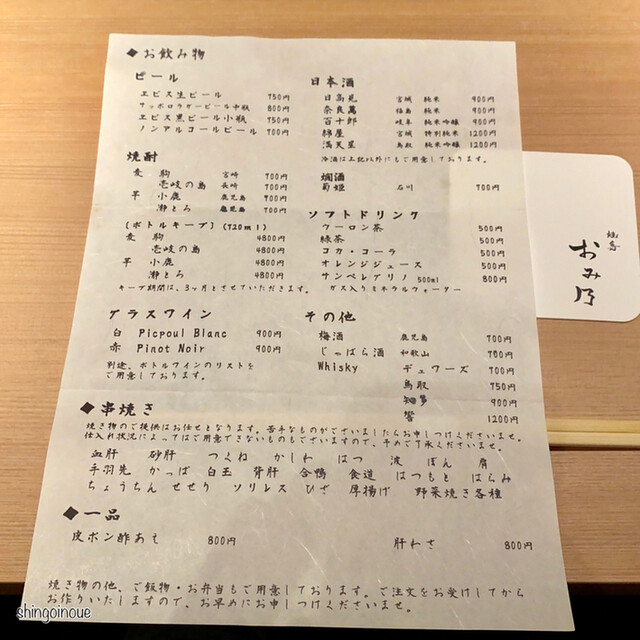 ◆お飲み物
ビール
ヱビス生ビール 750円
サッポロラガービール中瓶 800円
ヱビス黒ビール小瓶 750円
ノンアルコールビール 700円
焼酎
麦 駒 宮崎 700円
壱岐の島 長崎 700円
芋 小鹿 鹿児島 700円
瀞とろ 鹿児島 700円
(ボトルキープ)(720ml)
麦 駒 4800円
壱岐の島 4800円
芋 小鹿 4800円
瀞とろ 4800円
キープ期間は、3ヶ月とさせていただきます。
グラスワイン
白 Picpoul Blanc 900円
赤 Pinot Noir 900円
別途、ボトルワインのリストを
ご用意しております。
日本酒
日高見 宮城 純米 900円
奈良萬 福島 純米 900円
百十郎 岐阜 純米吟醸 900円
綿屋 宮城 特別純米 1200円
満天星 鳥取 純米吟醸 1200円
冷酒は上記以外にもご用意しております。
燗酒
菊姫 石川 700円
ソフトドリンク
ウーロン茶 500円
緑茶 500円
コカ・コーラ 500円
オレンジジュース 500円
サンペレグリノ 500ml 800円
ガス入りミネラルウォーター
その他
梅酒 鹿児島 700円
じゃばら酒 和歌山 700円
Whisky デュワーズ 700円
鳥取 750円
知多 900円
響 1200円
◆串焼き
焼き物のご提供はお任せとなります。苦手なものがございましたらお申しつけくださいませ。
仕入れ状況によってはご用意できないものもございますので、予めご了承くださいませ。
血肝 砂肝 つくね かしわ はつ 波 ぼん 肩
手羽先 かっぱ 白玉 背肝 合鴨 食道 はつもと はらみ
ちょうちん せせり ソリレス ひざ 厚揚げ 野菜焼き各種
◆一品
皮ポン酢あえ 800円 肝わさ 800円
焼き物の他、ご飯物・お弁当もご用意しております。ご注文をお受けしてから
お作りいたしますので、お早めにお申しつけくださいませ。
おみ乃
shingoinoue